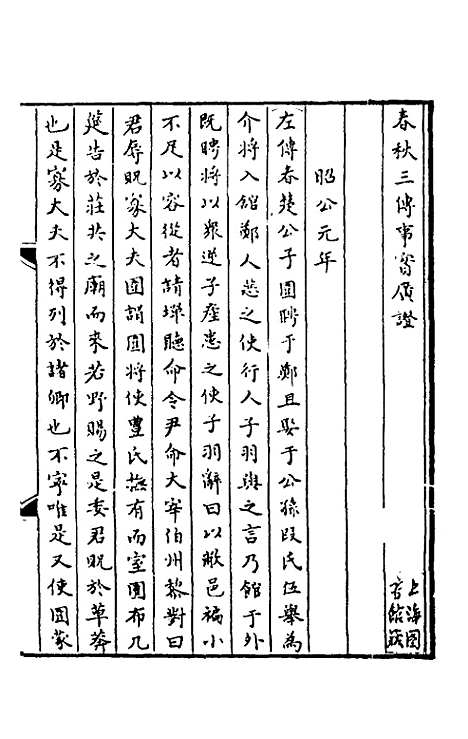 春秋三傳事實廣證
上海圖
書館藏
昭公元年
左傳春楚公子圍聘于鄭且娶于公孫段氏伍舉為
介將入館鄭人惡之使行人子羽與之言乃館于外
既聘將以眾逆子產患之使子羽辭曰以敝邑褊小
不足以容從者請墠聽命令尹命大宰伯州黎對曰
君辱貺寡大夫圍謂圍將使豐氏撫有而室圍布几
筵告於莊共之廟而來若野賜之是委君貺於草莽
也是寡大夫不得列於諸卿也不寧唯是又使圍蒙